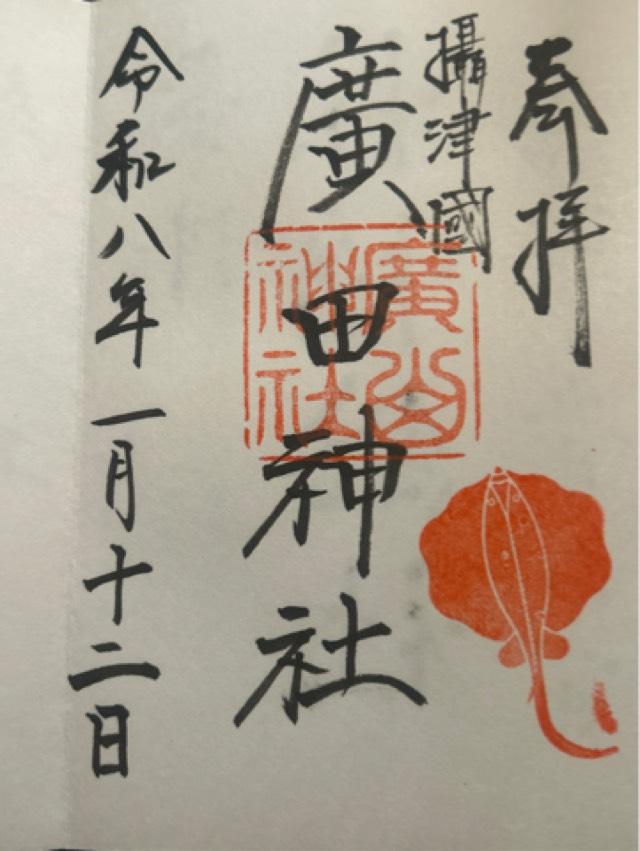 奉拝
攝津國
廣田神社
廣田神社
令和八年一月十二日